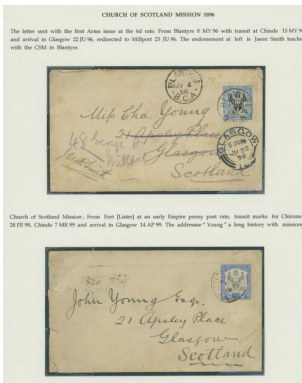 CHURCH OF SCOTLAND MISSION 1896
The letter sent with the first Arms issue at the 6d rate. From Blantyre 8 MY 96 with transit at Chinde 15 MY 9
and arrival in Glasgow 22 JU 96, redirected to Millport 23 JU 96. The endorsement at left is Jason Smith teache
with the CSM in Blantyre.
BLANTYRE
B.C.A.
Miss Cha. Young
21 Apsley Place
Glasgow
Scotland
48 George St
Millport
GLASGOW
JU 22
96
Church of Scotland Mission; From Fort [Lister] at an early Empire penny post rate, transit marks for Chiromo
28 FE 99, Chinde 7 MR 99 and arrival in Glasgow 14 AP 99. The addressee "Young" a long history with mission
John Young Esqr.
21 Apsley Place
Glasgow
Scotland